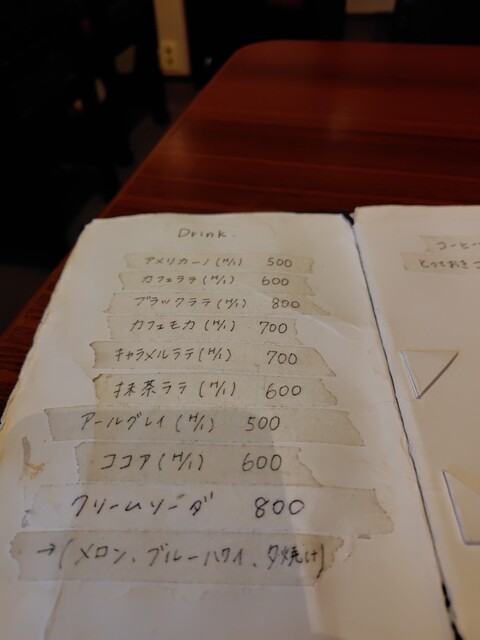 Drink.
アメリカーノ(H/I) 500
カフェラテ(H/I) 600
ブラックラテ(H/I) 800
カフェモカ(H/I) 700
キャラメルラテ(H/I) 700
抹茶ラテ(H/I) 600
アールグレイ(H/I) 500
ココア(H/I) 600
クリームソーダ 800
→(メロン、ブルーハワイ、夕焼け)
コーヒー
とっておき